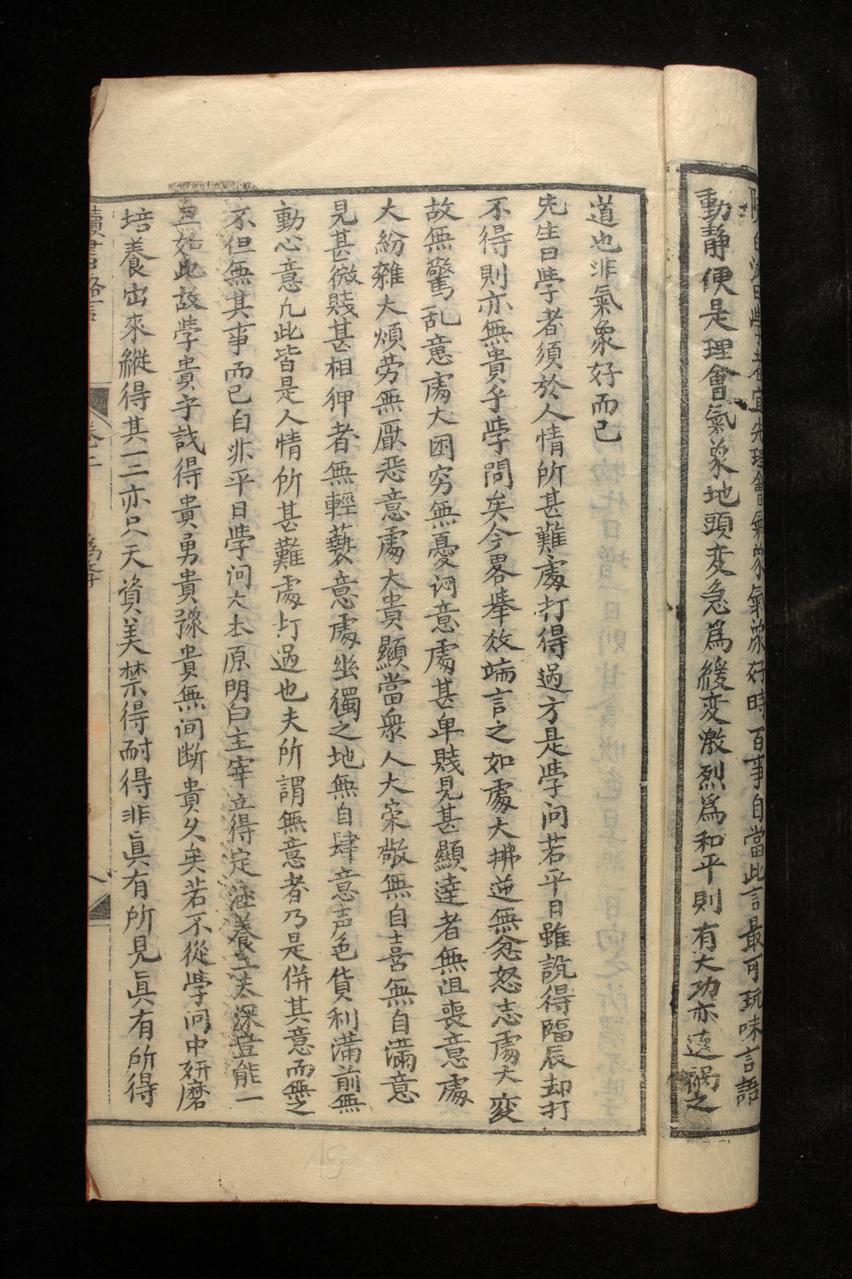 陳白沙曰學者宜先理會氣象氣象好時百事自當此言最可玩味言語
動静便是理會氣象地頭変急爲緩変激烈爲和平則有大功亦遠禍之
道也非氣象好而已
先生曰斈者須於人情所甚難處打得過方是斈問若平日雖説得臨辰却打
不得則亦無貴乎斈問矣今畧舉數端言之如處大拂逆無忿怒志處大变
故無驚乱意處大困穷無憂词意處甚卑賎見甚顯達者無沮喪意處
大紛雜大煩劳無厭恶意處大貴顯當衆人大寀敬無自喜無自滿意
見甚微賎甚相狎者無輕䙝意處幽獨之地無自肆意声色貨利滿前無
動心意凢此皆是人情所甚難處打過也夫所謂無意者乃是併其意而無之
不但無其事而已自非平日斈问大本原明白主宰立得定涵養工夫深豈能一
旦如此故斈貴乎识得貴勇貴豫貴無间断貴久矣若不從斈问中研磨
培養出來縱得其一二亦只天資美禁得耐得非眞有所見眞有所得
讀書畧言
卷二
為斈
八